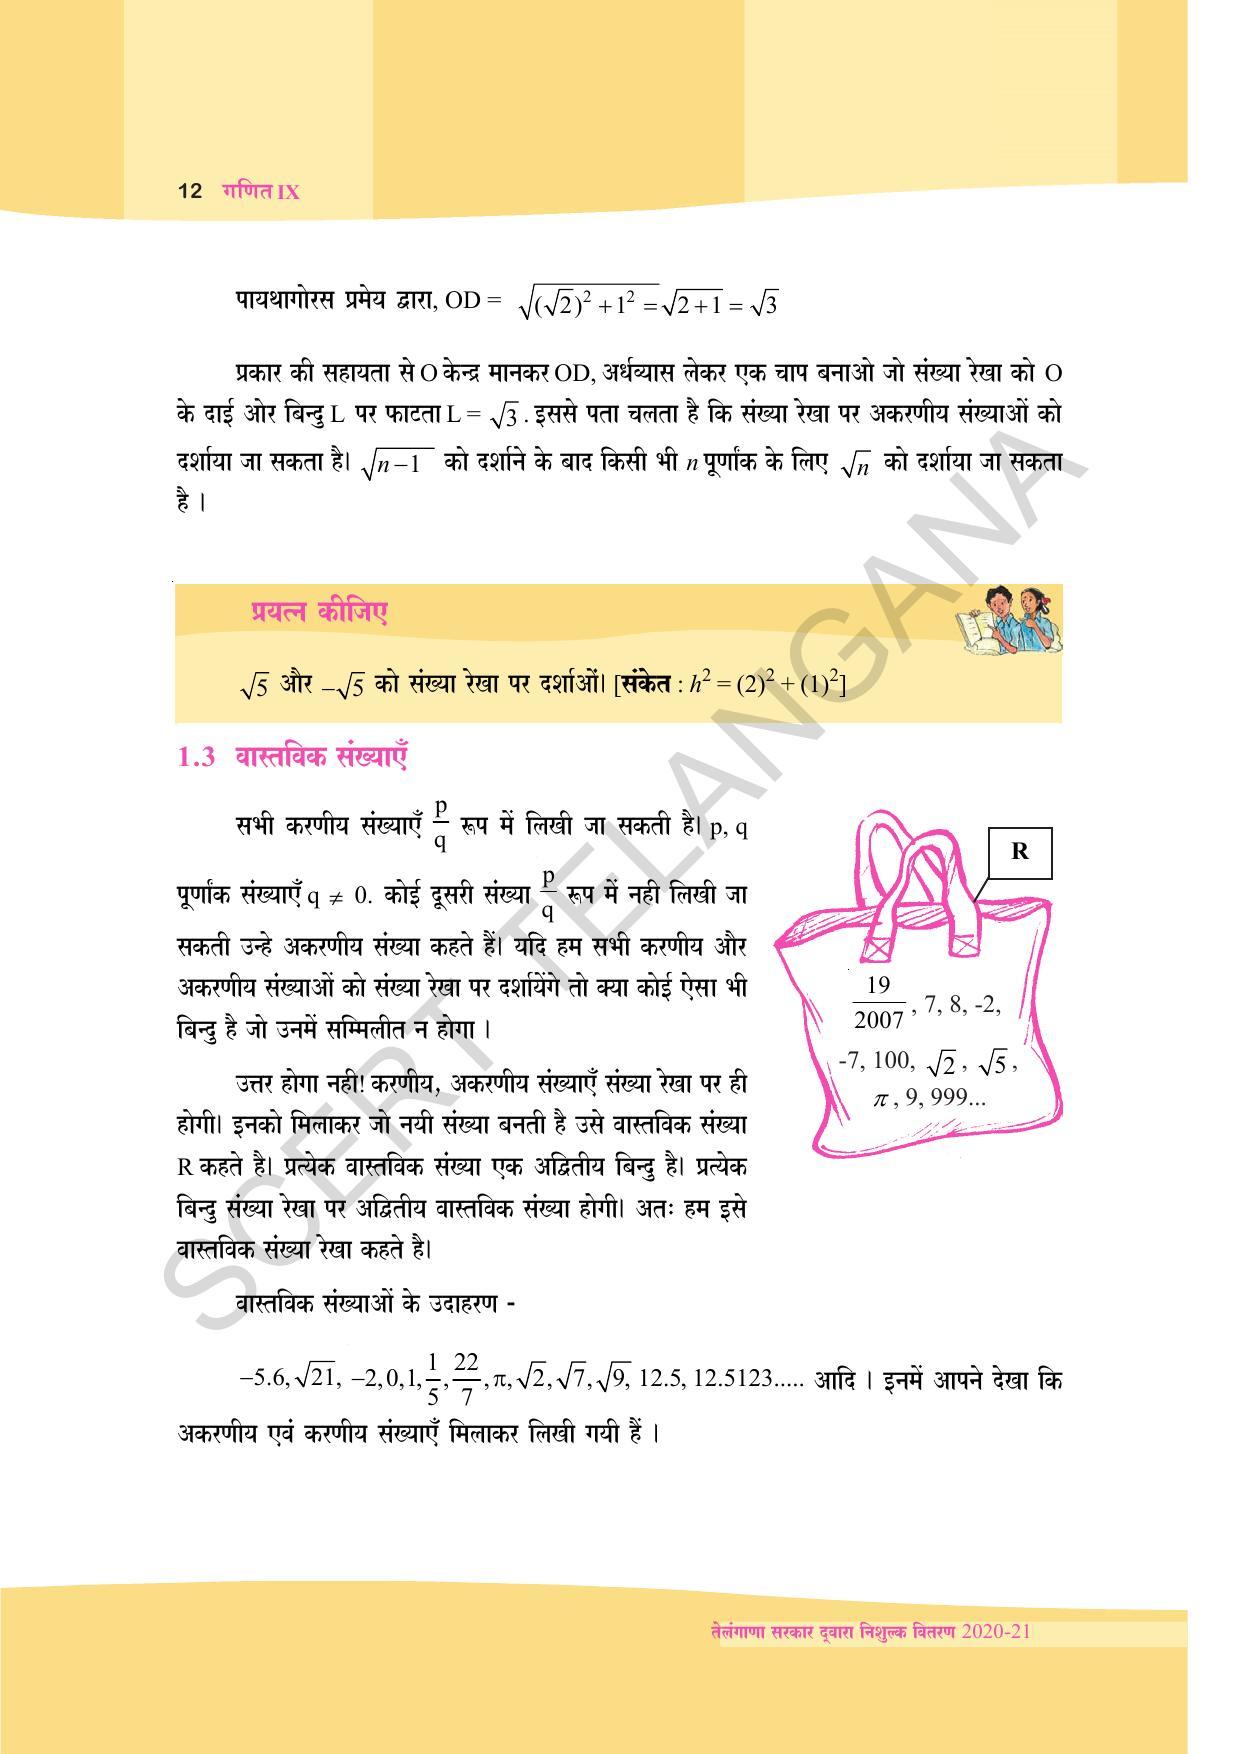 12 गणित IX
पायथागोरस प्रमेय द्वारा, OD = √((√2)² + 1²) = √(2+1) = √3
प्रकार की सहायता से O केन्द्र मानकर OD, अर्धव्यास लेकर एक चाप बनाओ जो संख्या रेखा को O
के दाई ओर बिन्दु L पर फाटता L = √3 . इससे पता चलता है कि संख्या रेखा पर अकरणीय संख्याओं को
दर्शाया जा सकता है। √(n−1) को दर्शाने के बाद किसी भी n पूर्णांक के लिए √n को दर्शाया जा सकता
है ।
प्रयत्न कीजिए
√5 और –√5 को संख्या रेखा पर दर्शाओं। [संकेत : h² = (2)² + (1)²]
1.3 वास्तविक संख्याएँ
सभी करणीय संख्याएँ p/q रूप में लिखी जा सकती है। p, q
पूर्णांक संख्याएँ q ≠ 0. कोई दूसरी संख्या p/q रूप में नही लिखी जा
सकती उन्हे अकरणीय संख्या कहते हैं। यदि हम सभी करणीय और
अकरणीय संख्याओं को संख्या रेखा पर दर्शायेंगे तो क्या कोई ऐसा भी
बिन्दु है जो उनमें सम्मिलीत न होगा ।
उत्तर होगा नही! करणीय, अकरणीय संख्याएँ संख्या रेखा पर ही
होगी। इनको मिलाकर जो नयी संख्या बनती है उसे वास्तविक संख्या
R कहते है। प्रत्येक वास्तविक संख्या एक अद्वितीय बिन्दु है। प्रत्येक
बिन्दु संख्या रेखा पर अद्वितीय वास्तविक संख्या होगी। अतः हम इसे
वास्तविक संख्या रेखा कहते है।
R
19/2007 , 7, 8, -2,
-7, 100, √2 , √5 ,
π , 9, 999...
वास्तविक संख्याओं के उदाहरण -
–5.6, √21, –2, 0, 1, 1/5, 22/7, π, √2, √7, √9, 12.5, 12.5123..... आदि । इनमें आपने देखा कि
अकरणीय एवं करणीय संख्याएँ मिलाकर लिखी गयी हैं ।
SCERT TELANGANA
तेलंगाणा सरकार द्वारा निशुल्क वितरण 2020-21